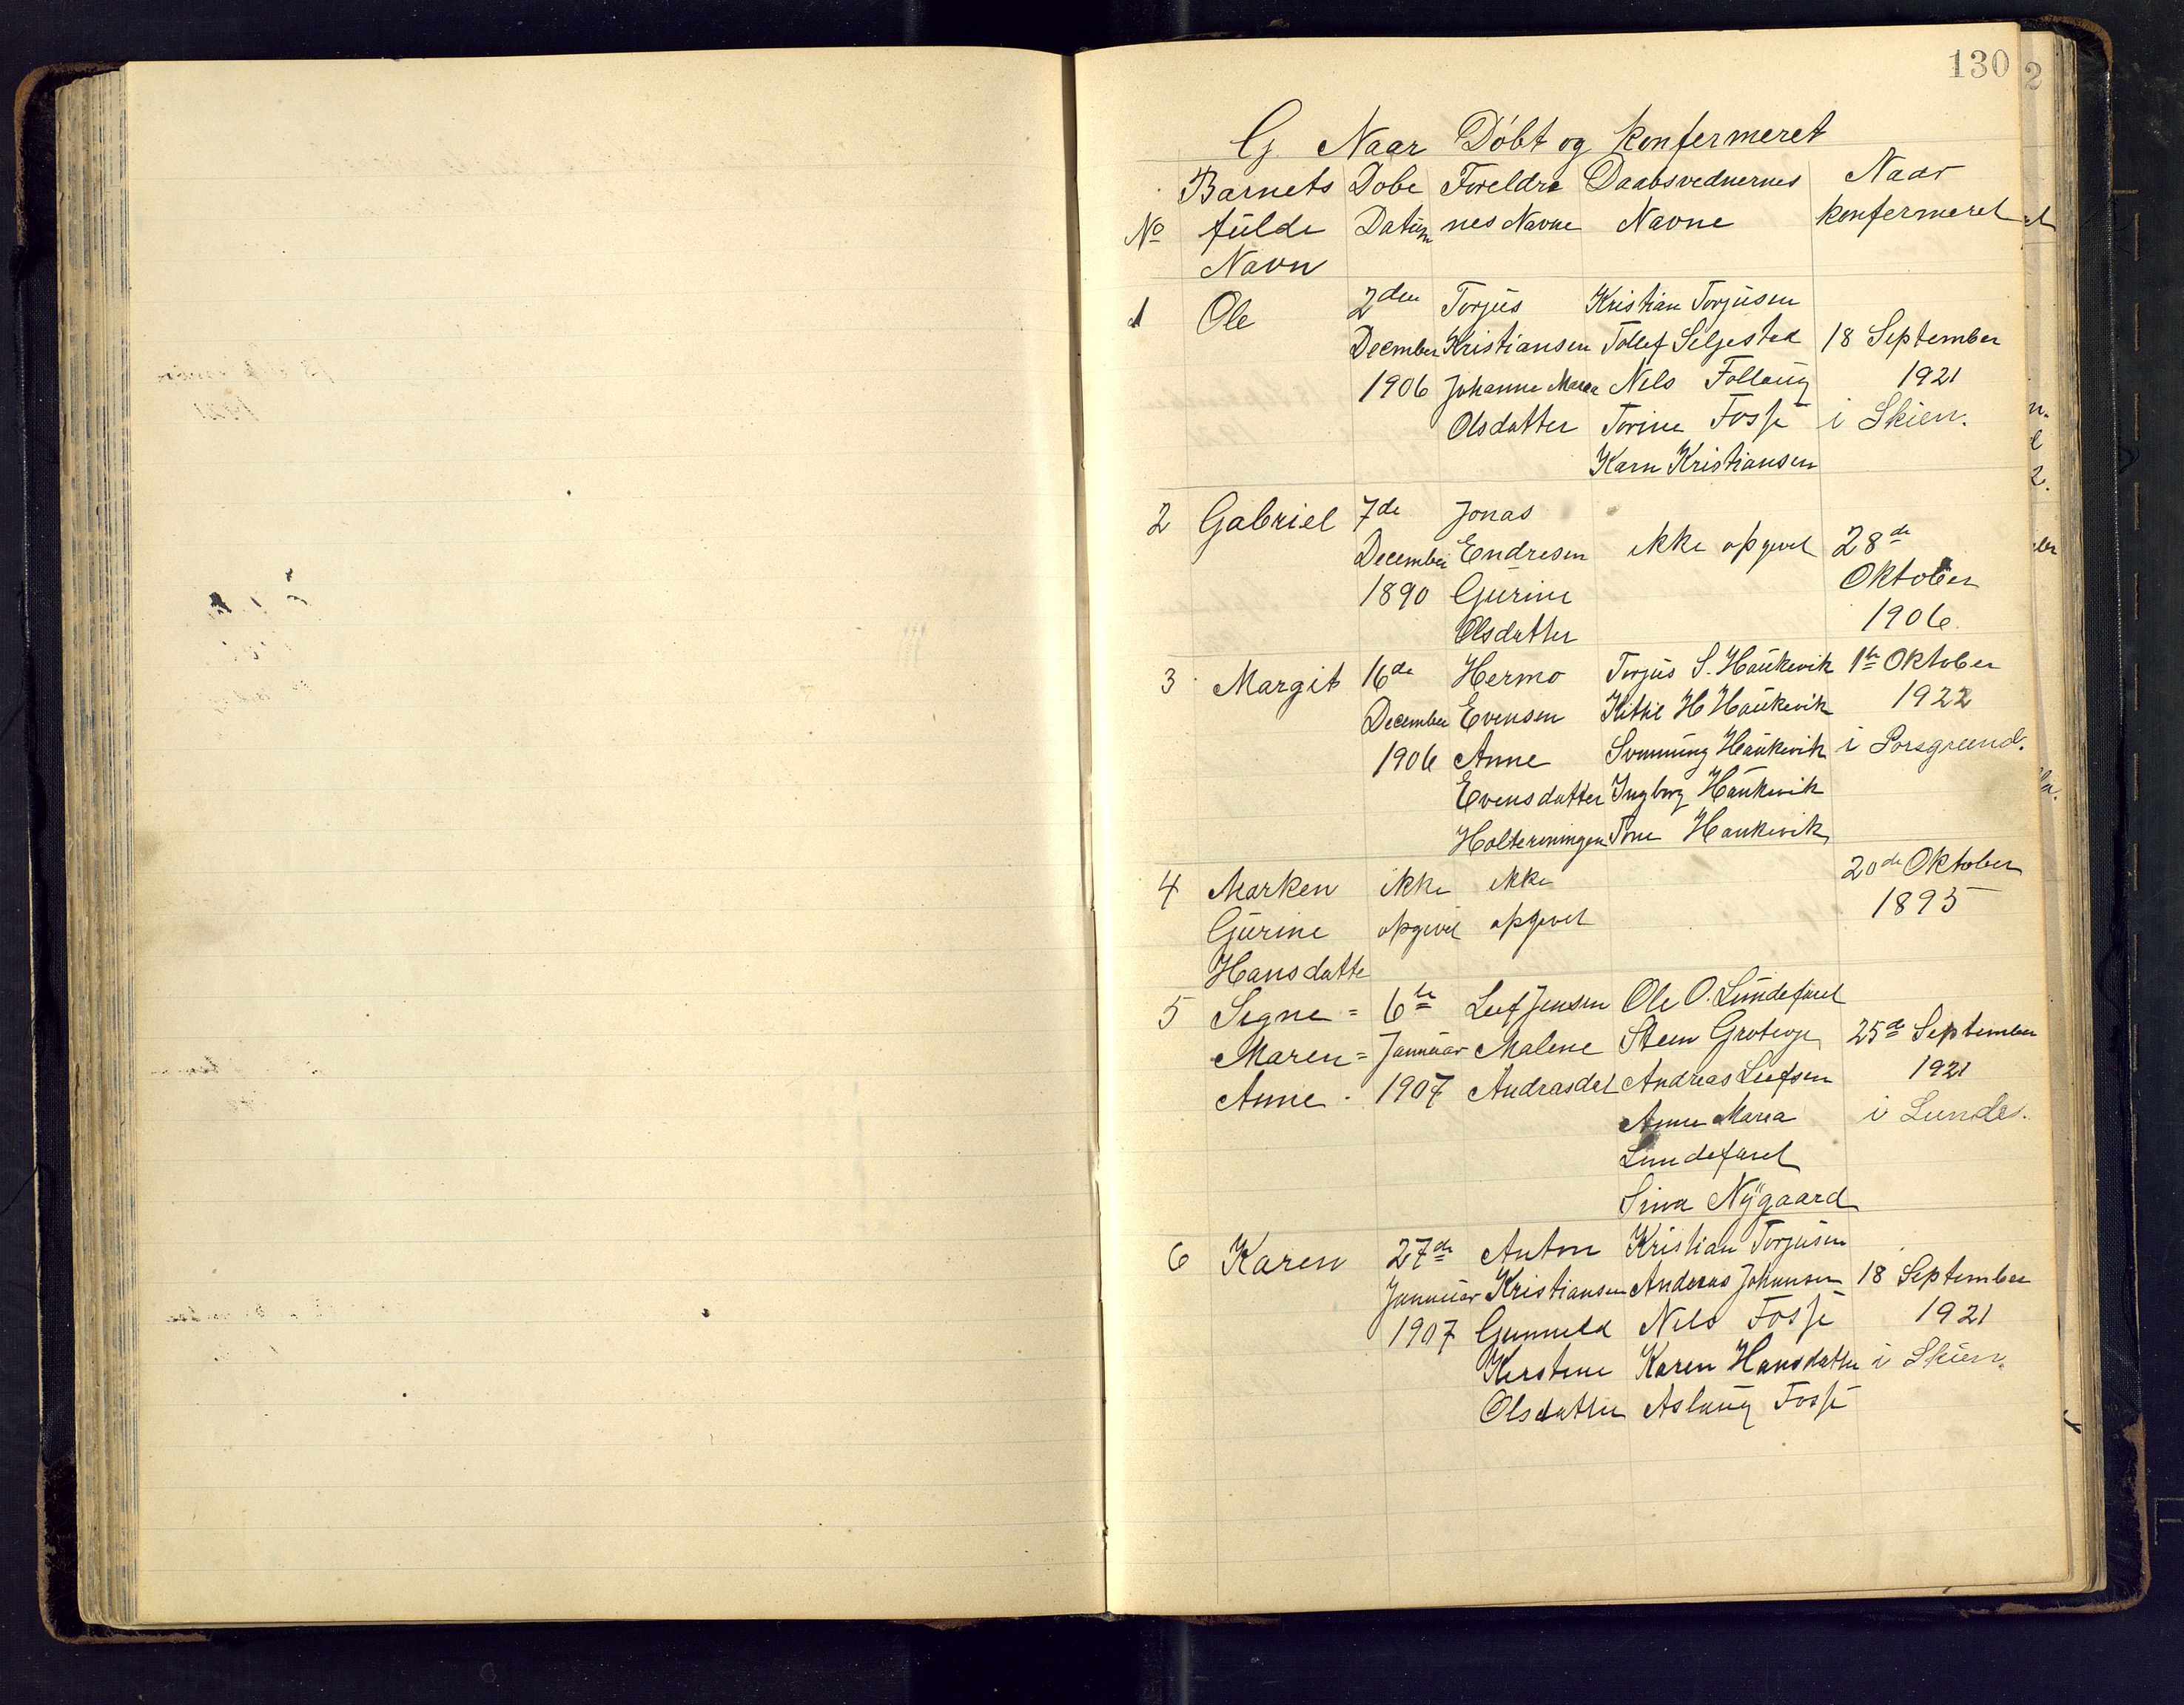 130
G. Naar Döbt og Konfermeret
Barnets Dobe Foreldre Daabsvednernes Naar
No fulde Datum nes Navne Navne konfermeret
Navn
1 Ole 2den Torjus Kristian Torjusen
December Kristiansen Tollef Seljestad 18 September
1906 Johanne Maria Nils Follaug 1921
Olsdatter Torine Fosse i Skien.
Karn Kristiansen
2 Gabriel 7de Jonas
December Endresen ikke opgivet 28de
1890 Gurine Oktober
Olsdatter 1906.
3 Margit 16de Hermo Torjus S. Haukevik 1te Oktober
December Evensen Kittil H Haukevik 1922
1906 Anne Svenning Haukevik i Porsgrund.
Evensdatter Ingborg Haukevik
Holtermingen Tone Haukevik
4 Marken ikke ikke 20de Oktober
Gurine opgivet opgivet 1895
Hansdatte
5 Signe = 6te Leif Jensen Ole O. Lundefaret
Maren = Januar Malene Steen Groteje 25de September
Anne. 1907 Andrasdet Andreas Leifsen 1921
Anne Maria i Lunde.
Lundefaret
Sina Nygaard
6 Karen 27de Anton Kristian Torjusen
Januar Kristiansen Andreas Johansen 18 September
1907 Gunnild Nils Fosse 1921
Kerstine Karen Hansdatter i Skien.
Olsdatter Aslaug Fosse